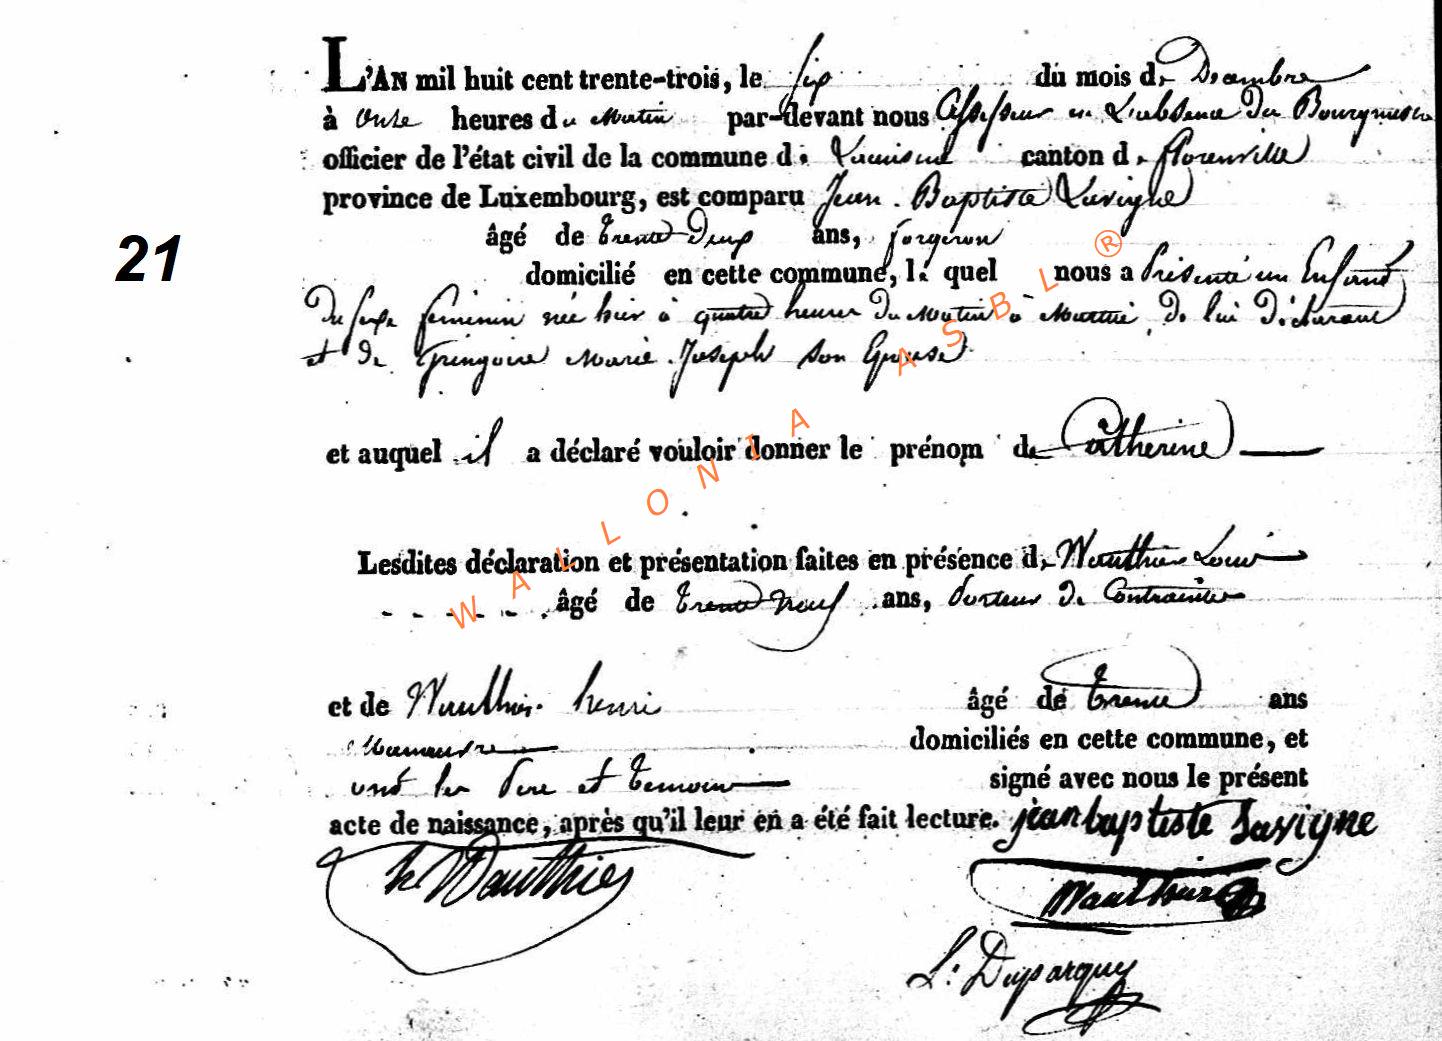 L'AN mil huit cent trente-trois, le six du mois de Décembre
à onze heures du Matin par-devant nous assesseur en l'absence du Bourgmestre
officier de l'état civil de la commune de canton de florenville
province de Luxembourg, est comparu Jean Baptiste Lavigne
21
âgé de trente Deux ans, forgeron
domicilié en cette commune, le quel nous a présenté un Enfant
du sexe féminin née hier à quatre heures du Matin à de lui Déclarant
et de Gringoire Marie Joseph son Epouse
et auquel il a déclaré vouloir donner le prénom de Catherine
Lesdites déclaration et présentation faites en présence de Wauthier Louis
âgé de trente neuf ans, porteur de Contraintes
et de Wauthier henri âgé de trente ans
domiciliés en cette commune, et
ont les père et témoins signé avec nous le présent
acte de naissance, après qu'il leur en a été fait lecture. jean baptiste Lavigne
h Wauthier
Wauthier
L: Duparquy
WALLONIA ASBL ®